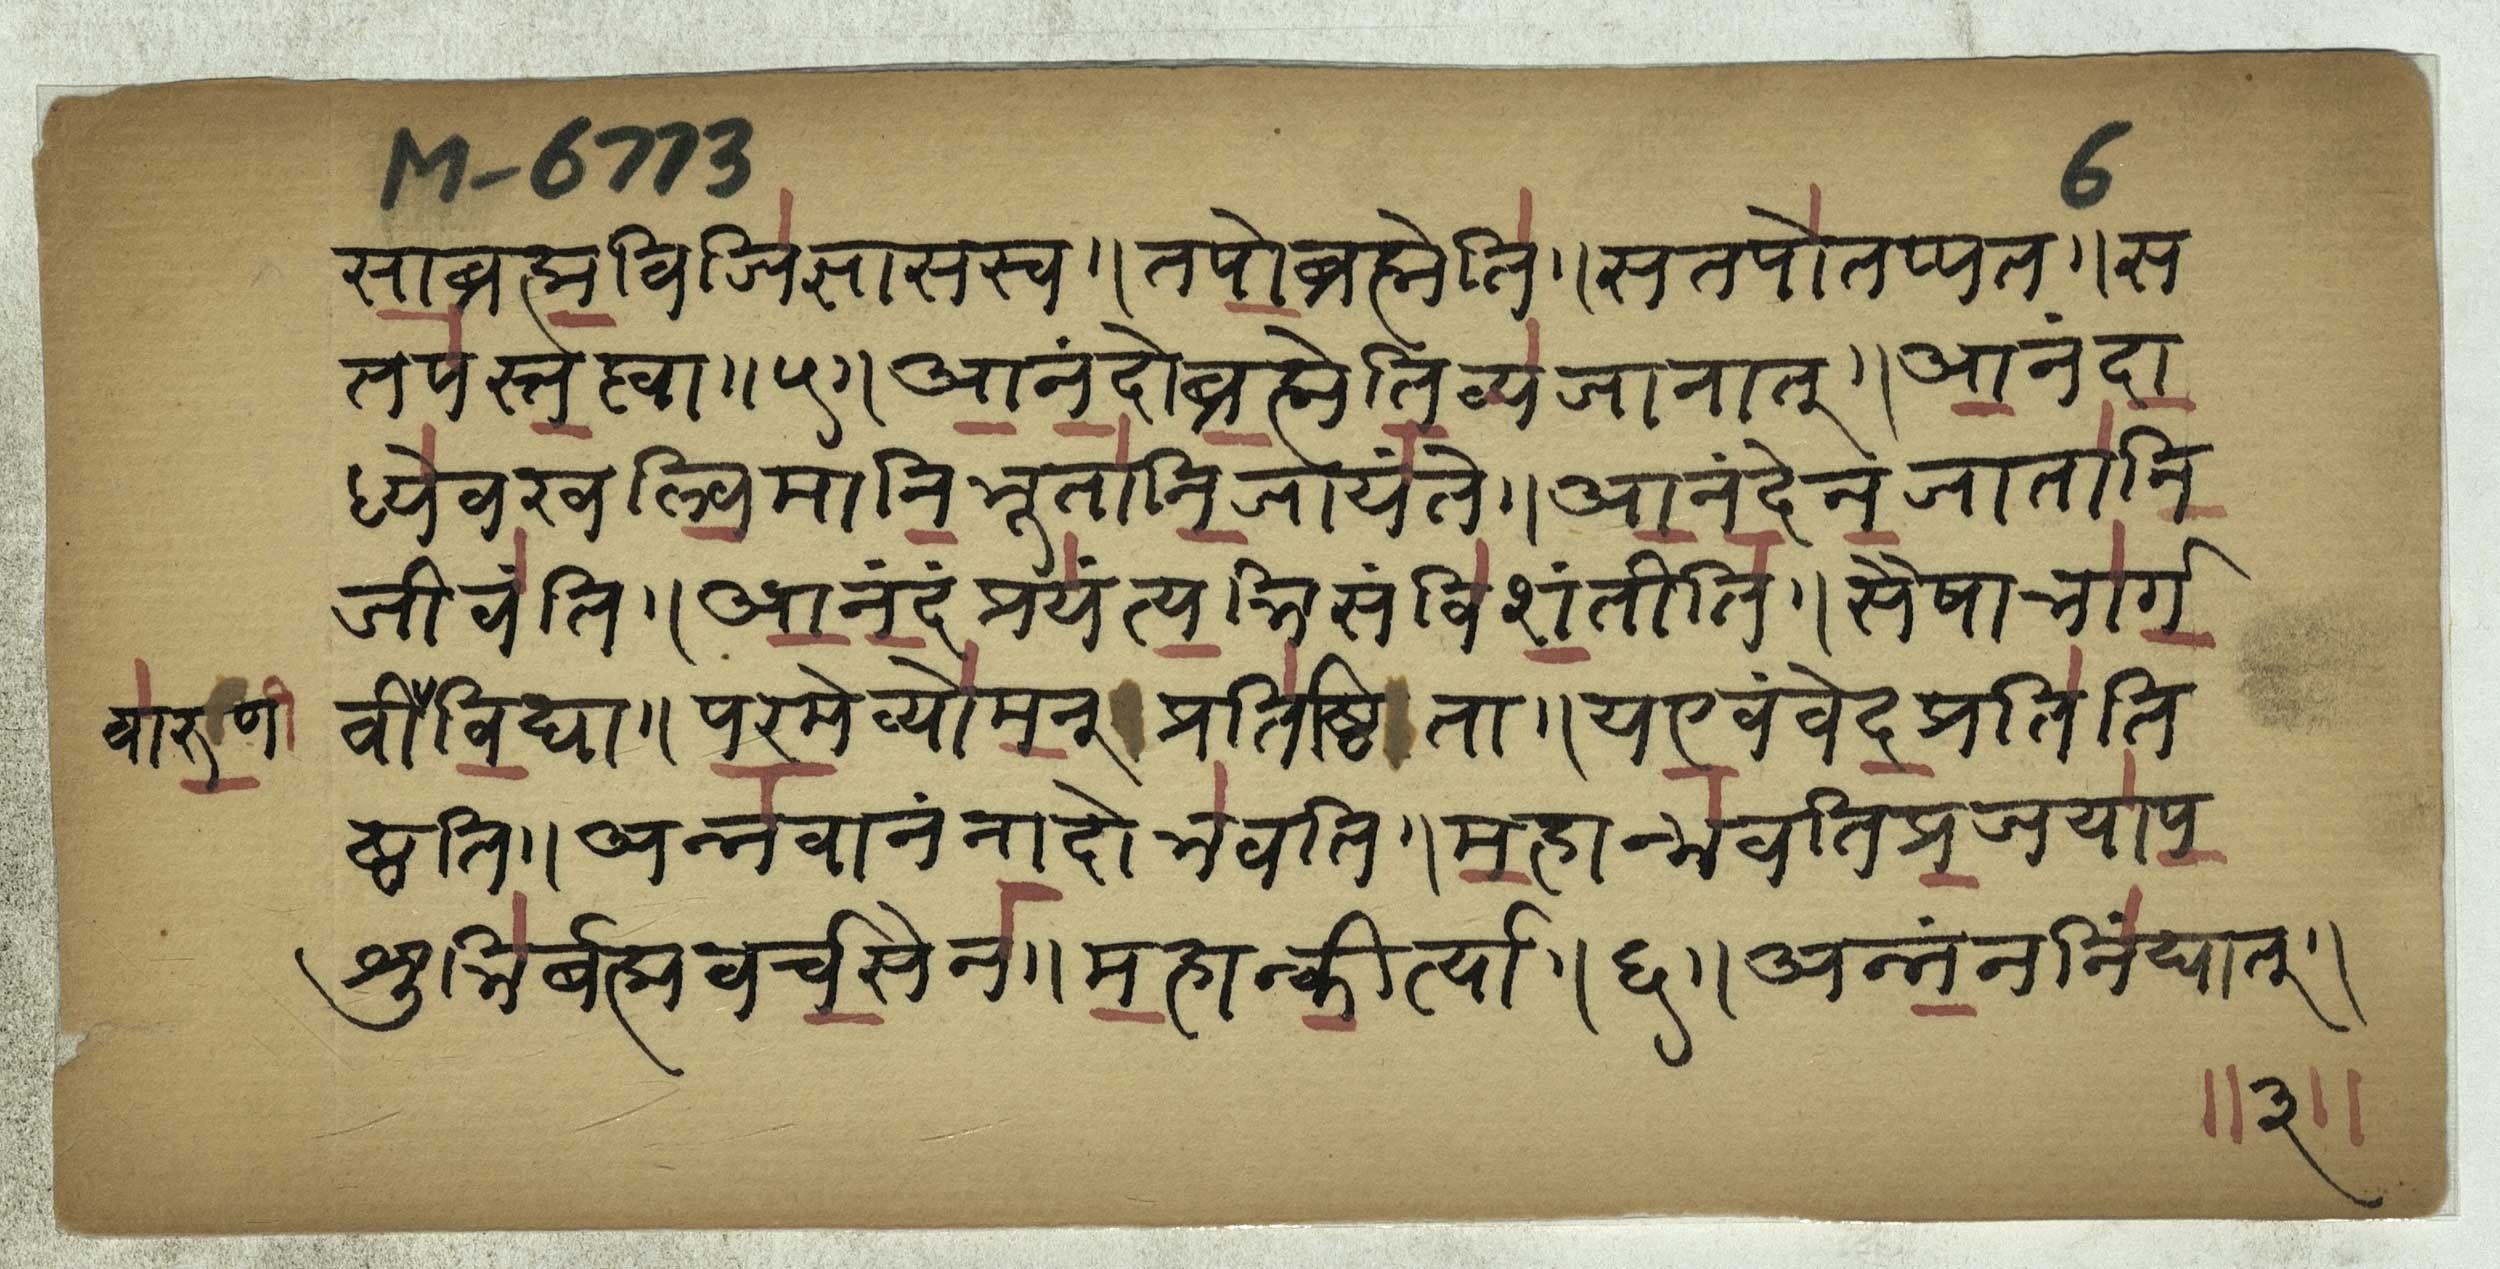 M-6773
6
सा॒ब्रह्म॒विजि॑ज्ञासस्व॥तपो॒ब्रह्मेति॑॥सतपो॑तप्यत॥स
तप॑स्त॒प्त्वा॥५॥आ॒नं॒दोब्र॒ह्मेति॒व्य॑जानात्॥आ॒नंदा॒
ध्ये॑वखल्वि॒मानि॒भूता॑नि॒जायं॑ते॥आ॒नं॒देन॒जाता॑नि॒
जीवं॑ति॥आ॒नं॒दंप्रयं॑त्य॒भिसंवि॑शं॒तीति॑॥सैषाभा॑र्ग॒
वीवा॑रु॒णीवि॒द्या॥प॒र॒मेव्यो॑म॒न्प्रति॑ष्ठिता॥यए॒वंवेद॒प्रति॑ति
ष्ठति॥अन्न॑वानंना॒दोभ॑वति॥म॒हान्भ॑वतिप्र॒जया॑प॒
शुभि॑र्ब्रह्मवर्च॒सेन॑॥म॒हान्की॒र्त्या॥६॥अन्नं॒ननिं॑द्यात्॥
॥३॥